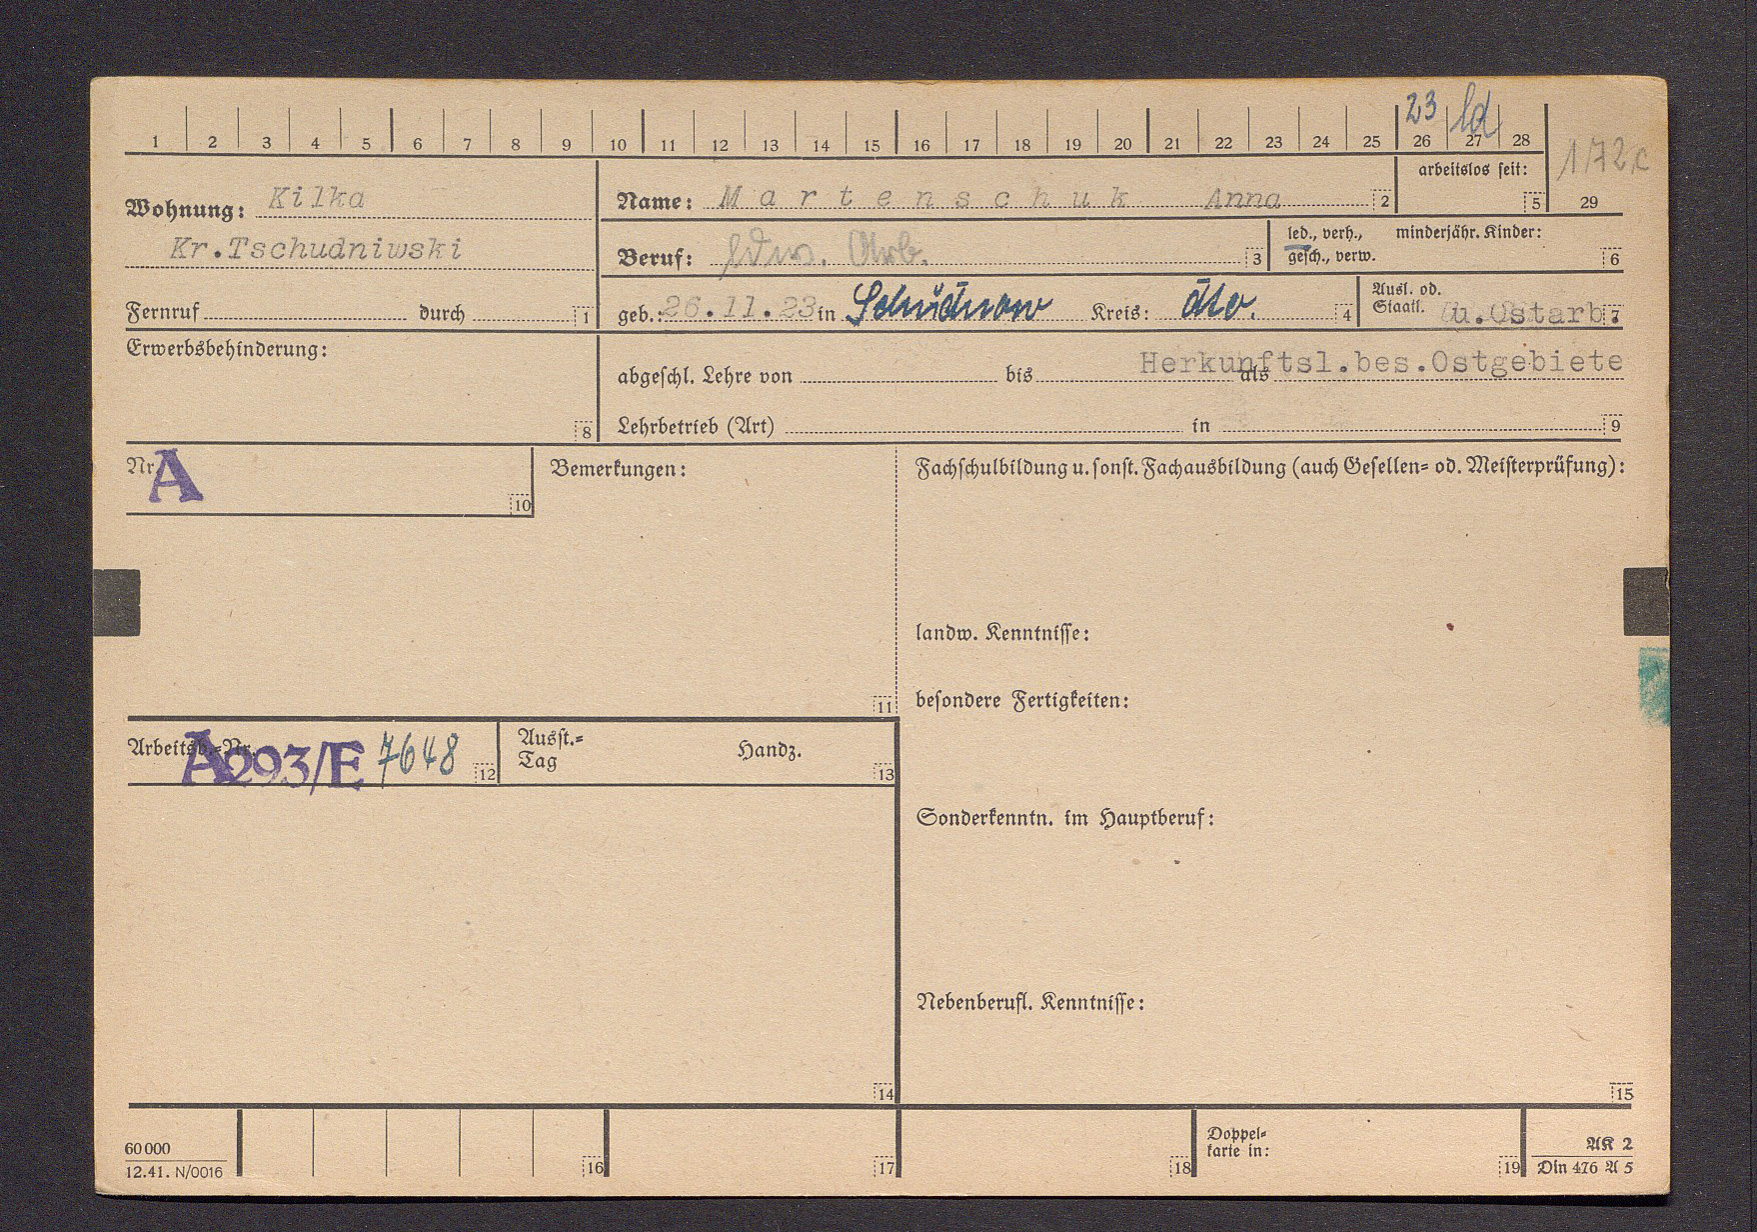 23 ld
1 2 3 4 5 6 7 8 9 10 11 12 13 14 15 16 17 18 19 20 21 22 23 24 25 26 27 28
172c
29
Wohnung: Kilka
Kr.Tschudniwski
Fernruf durch 1
Name: Martenschuk Anna 2
arbeitslos seit: 5
Beruf: Arb. 3
led., verh., minderjähr. Kinder:
gesch., verw. 6
geb.: 26.11.23 in Kreis: dto. 4
Ausl. od.
Staatl. u.Ostarb. 7
Erwerbsbehinderung: 8
Herkunftsl.bes.Ostgebiete
abgeschl. Lehre von bis als
Lehrbetrieb (Art) in 9
Nr. A 10
Bemerkungen: 11
Fachschulbildung u. sonst. Fachausbildung (auch Gesellen= od. Meisterprüfung):
landw. Kenntnisse:
besondere Fertigkeiten:
Arbeitsb.-Nr. A293/E 7648 12
Ausst.= Handz.
Tag 13
Sonderkenntn. im Hauptberuf:
Nebenberufl. Kenntnisse:
14
15
60000
12.41. N/0016
16
17
18
Doppel=
karte in: 19
AK 2
Din 476 A 5